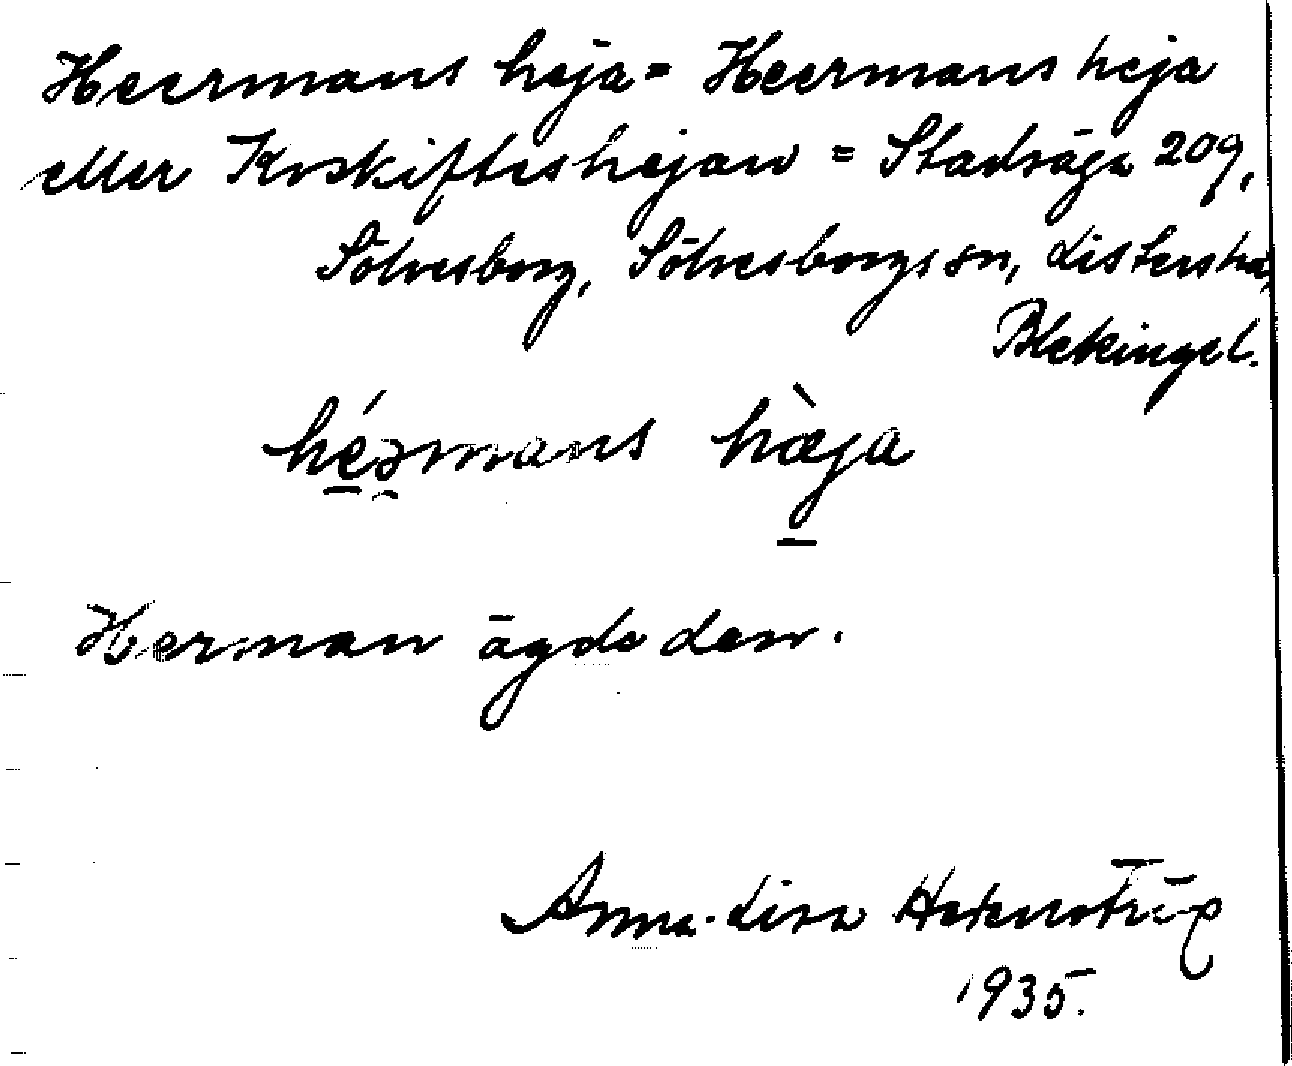 Heermans heja = Heermansheja
eller Kvskifteshejan = Stadsäga 209,
Sölvesborg, Sölvesborgs sn, Listers hd,
Blekinge l.
héərmans hæ̀ja
Herman ägde den.
Anna-Lisa
1935.